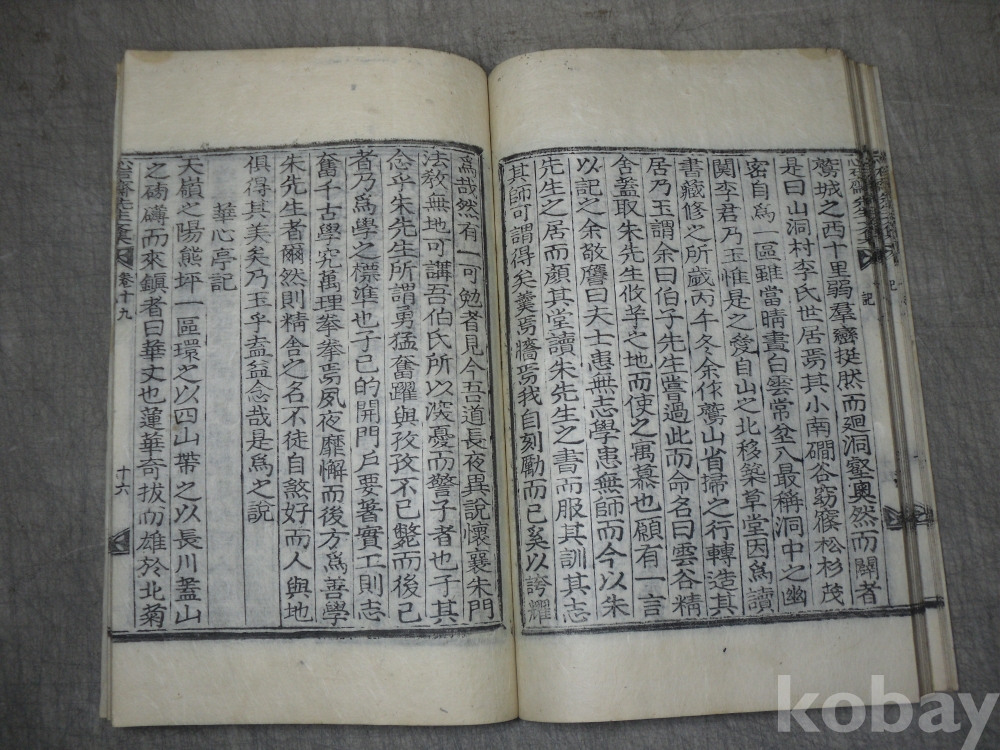 鷲城之西十里弱羣巒挺然而廻洞壑奧然而闢者
是曰山洞村李氏世居焉其小南磵谷窈窱松杉茂
密自爲一區雖當晴晝白雲常坌入最稱洞中之幽
闃李君乃玉惟是之愛自山之北移築草堂因爲讀
書藏修之所歲丙午冬余作鷲山省掃之行轉造其
居乃玉謂余曰伯子先生嘗過此而命名曰雲谷精
舍盖取朱先生收芋之地而使之寓慕也顧有一言
以記之余敬譍曰夫士患無志學患無師而今以朱
先生之居而顔其堂讀朱先生之書而服其訓其志
其師可謂得矣羹焉牆焉我自刻勵而已奚以誇耀
爲哉然有一可勉者見今吾道長夜異說懷襄朱門
法敎無地可講吾伯氏所以深憂而警子者也子其
念乎朱先生所謂勇猛奮躍與孜孜不已斃而後已
者乃爲學之標準也子已的開門戶要著實工則志
奮千古學究萬理拳拳焉夙夜靡懈而後方爲善學
朱先生者爾然則精舍之名不徒自煞好而人與地
俱得其美矣乃玉乎盍益念哉是爲之說
華心亭記
天嶺之陽熊坪一區環之以四山帶之以長川蓋山
之磅礴而來鎮者曰華丈也蓮華奇拔而雄於北菊
卷十九
十六
記
kobay